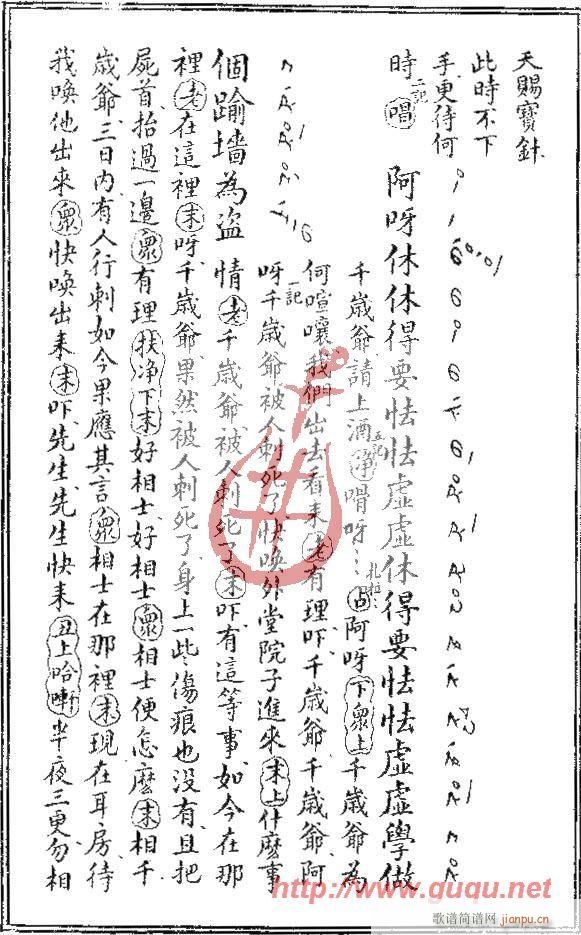 天賜寶針
此時不下
手更待何
時
唱
阿呀休休得要怯怯虛虛休得要怯怯虛虛學做
千歲爺請上酒淨嘓呀占阿呀下衆上千歲爺為
何喧嚷我們出去看來老有理吓千歲爺千歲爺阿
一記
呀千歲爺被人刺死了快喚外堂院子進來末上什麼事
個踰墻為盜
情老千歲爺被人刺死了末吓有這等事如今在那
裡老在這裡末呀千歲爺果然被人刺死了身上一些傷痕也没有且把
屍首抬過一邊衆有理扶净下末好相士好相士衆相士便怎麽末相千
歲爺三日內有人行刺如今果應其言衆相士在那裡末現在耳房待
我喚他出來衆快喚出来末吓先生先生快来丑上哈㘄半夜三更勿相
http://www.guqu.net
歌谱简谱网
jianpu.cn